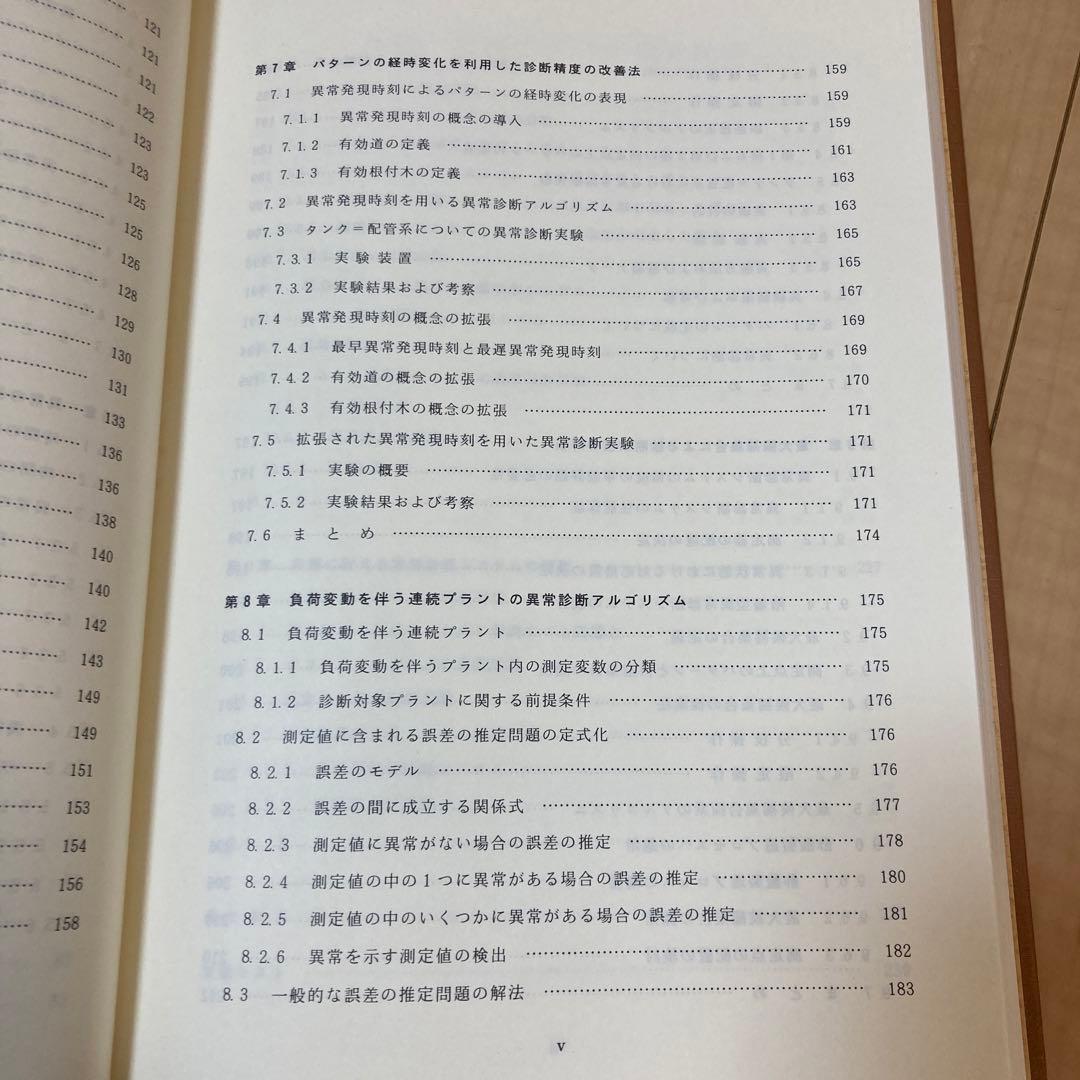 121
121
121
122
123
123
125
125
126
128
129
130
131
133
136
136
138
140
140
142
143
149
149
151
153
154
156
158
第7章 パターンの経時変化を利用した診断精度の改善法 ………… 159
7.1 異常発現時刻によるパターンの経時変化の表現 ………… 159
7.1.1 異常発現時刻の概念の導入 ………… 159
7.1.2 有効道の定義 ………… 161
7.1.3 有効根付木の定義 ………… 163
7.2 異常発現時刻を用いる異常診断アルゴリズム ………… 163
7.3 タンク=配管系についての異常診断実験 ………… 165
7.3.1 実験装置 ………… 165
7.3.2 実験結果および考察 ………… 167
7.4 異常発現時刻の概念の拡張 ………… 169
7.4.1 最早異常発現時刻と最遅異常発現時刻 ………… 169
7.4.2 有効道の概念の拡張 ………… 170
7.4.3 有効根付木の概念の拡張 ………… 171
7.5 拡張された異常発現時刻を用いた異常診断実験 ………… 171
7.5.1 実験の概要 ………… 171
7.5.2 実験結果および考察 ………… 171
7.6 まとめ ………… 174
第8章 負荷変動を伴う連続プラントの異常診断アルゴリズム ………… 175
8.1 負荷変動を伴う連続プラント ………… 175
8.1.1 負荷変動を伴うプラント内の測定変数の分類 ………… 175
8.1.2 診断対象プラントに関する前提条件 ………… 176
8.2 測定値に含まれる誤差の推定問題の定式化 ………… 176
8.2.1 誤差のモデル ………… 176
8.2.2 誤差の間に成立する関係式 ………… 177
8.2.3 測定値に異常がない場合の誤差の推定 ………… 178
8.2.4 測定値の中の1つに異常がある場合の誤差の推定 ………… 180
8.2.5 測定値の中のいくつかに異常がある場合の誤差の推定 ………… 181
8.2.6 異常を示す測定値の検出 ………… 182
8.3 一般的な誤差の推定問題の解法 ………… 183
v